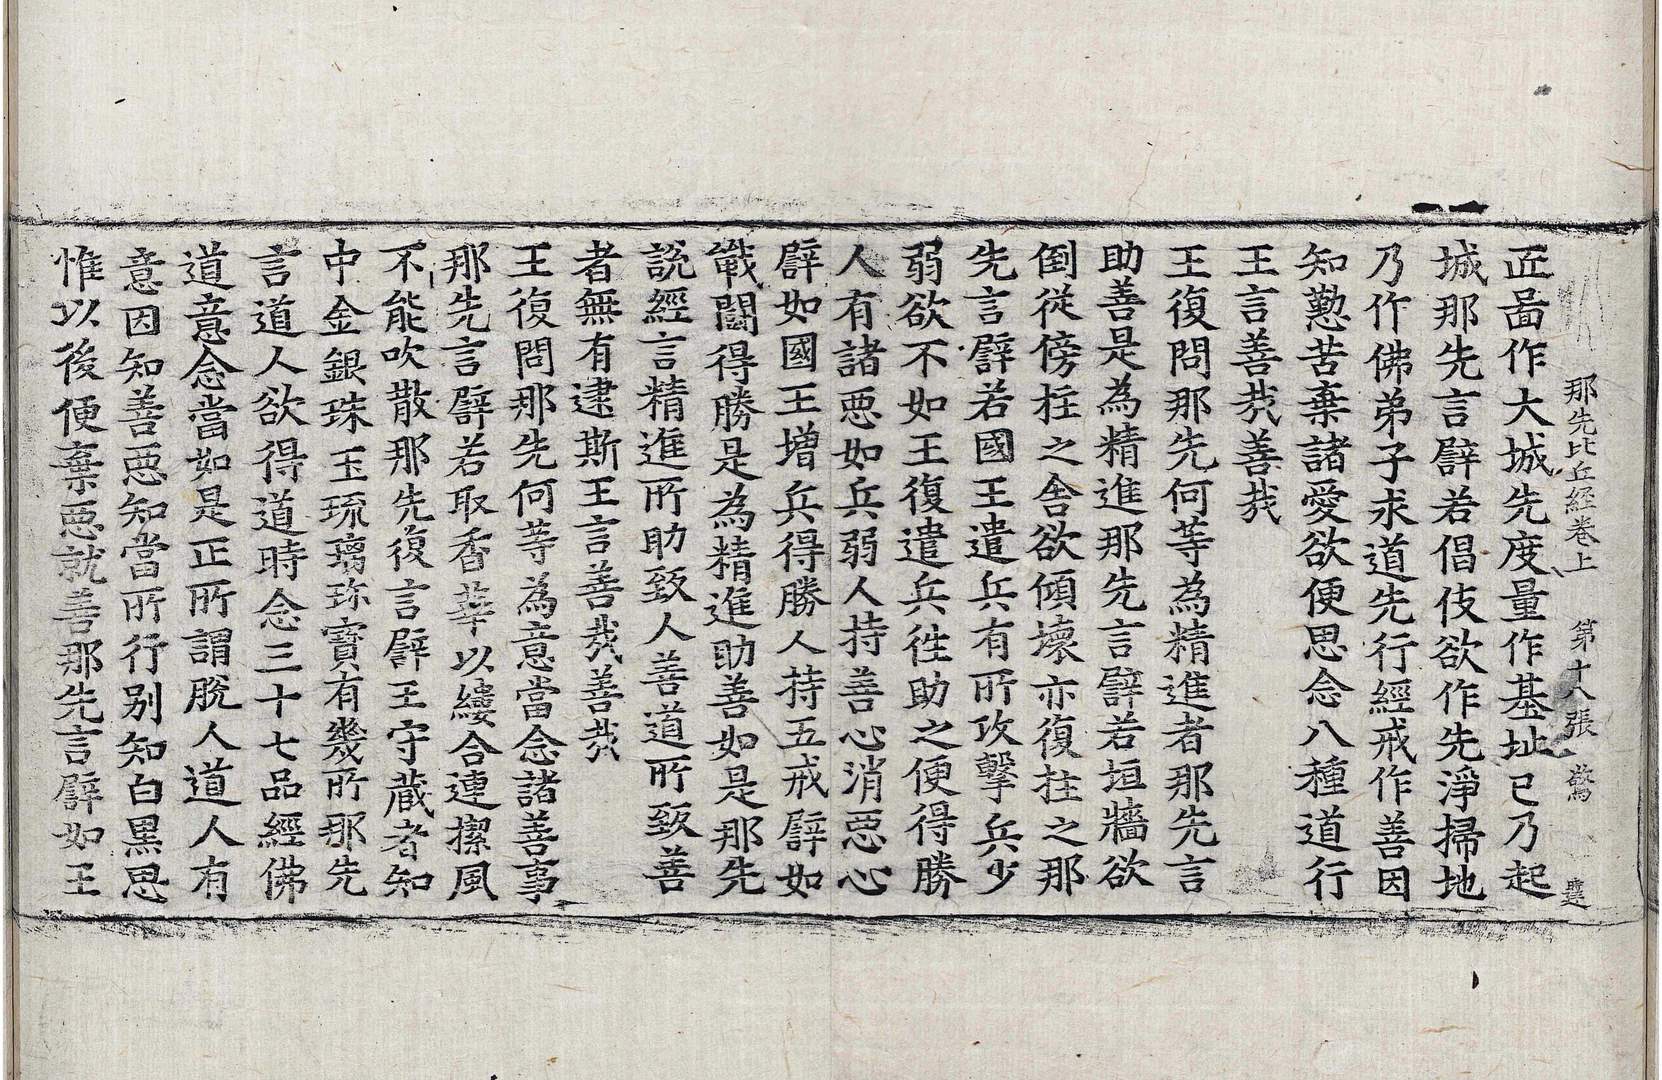 那先比丘經卷上 第十八張 驚
匠啚作大城先度量作基址已乃起
城那先言譬若倡伎欲作先淨掃地
乃作佛弟子求道先行經戒作善因
知懃苦棄諸愛欲便思念八種道行
王言善㢤善㢤
王復問那先何等為精進者那先言
助善是為精進那先言譬若垣牆欲
倒從傍拄之舎欲傾壞亦復拄之那
先言譬若國王遣兵有所攻擊兵少
弱欲不如王復遣兵徃助之便得勝
人有諸惡如兵弱人持善心消惡心
譬如國王增兵得勝人持五戒譬如
戰鬪得勝是為精進助善如是那先
說經言精進所助致人善道所致善
者無有逮斯王言善㢤善㢤
王復問那先何等為意當念諸善事
那先言譬若取香華以縷合連撃風
不能吹散那先復言譬王守藏者知
中金銀珠玉琉璃珎寶有幾所那先
言道人欲得道時念三十七品經佛
道意念當如是正所謂脫人道人有
意因知善惡知當所行別知白黒思
惟以後便棄惡就善那先言譬如王